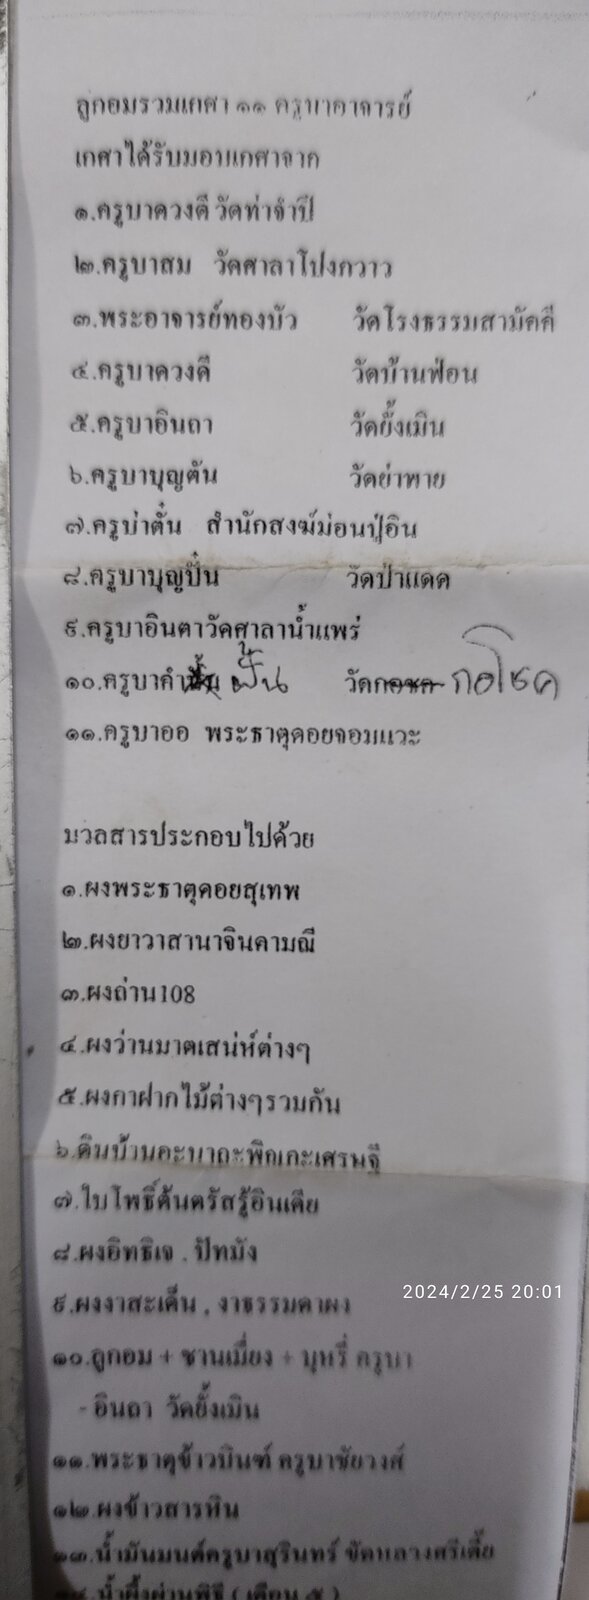 ลูกอมรวมเกศา ๑๑ ครูบาอาจารย์
เกศาได้รับมอบเกศาจาก
๑.ครูบาดวงดี วัดท่าจำปี
๒.ครูบาสม วัดศาลาโป่งกวาว
๓.พระอาจารย์ทองบัว วัดโรงธรรมสามัคคี
๔.ครูบาดวงดี วัดบ้านฟ่อน
๕.ครูบาอินถา วัดยั้งเมิน
๖.ครูบาบุญตัน วัดย่าพาย
๗.ครูบ่าตั๋น สำนักสงฆ์ม่อนปู่อิน
๘.ครูบาบุญปั๋น วัดป่าแดด
๙.ครูบาอินตาวัดศาลาน้ำแพร่
๑๐.ครูบาคำ ฝั้น วัด กอโชค
๑๑.ครูบาออ พระธาตุดอยจอมแวะ
มวลสารประกอบไปด้วย
๑.ผงพระธาตุดอยสุเทพ
๒.ผงยาวาสานาจินดามณี
๓.ผงถ่าน108
๔.ผงว่านมาตเสน่ห์ต่างๆ
๕.ผงกาฝากไม้ต่างๆรวมกัน
๖.ดินบ้านอะนาถะพิณเกะเศรษฐี
๗.ใบโพธิ์ต้นตรัสรู้อินเดีย
๘.ผงอิทธิเจ . ปัทมัง
๙.ผงงาสะเด็น , งาธรรมดาผง
2024/2/25 20:01
๑๐.ลูกอม + ชานเมี่ยง + บุหรี่ ครูบา
- อินถา วัดยั้งเมิน
๑๑.พระธาตุข้าวบินฑ์ ครูบาชัยวงศ์
๑๒.ผงข้าวสารหิน
๑๓.น้ำมันมนต์ครูบาสุรินทร์ ขัดหลวงศรีเตี้ย
๑๔.น้ำผึ้งผ่านพิธี ( เดือน ๕ )